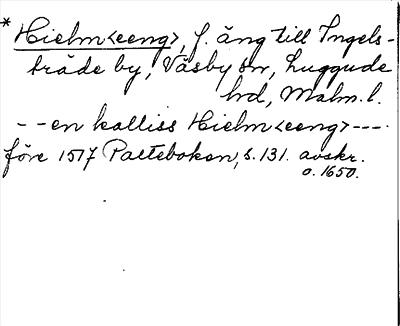 * Hielm<eeng>, f. äng till Ingels-
tråde by, Väsby sn, Luggude
hd, Malm. l.
- - en kalliss Hielm<eeng> - - -
före 1517 Palteboken, s. 131. avskr.
o. 1650.